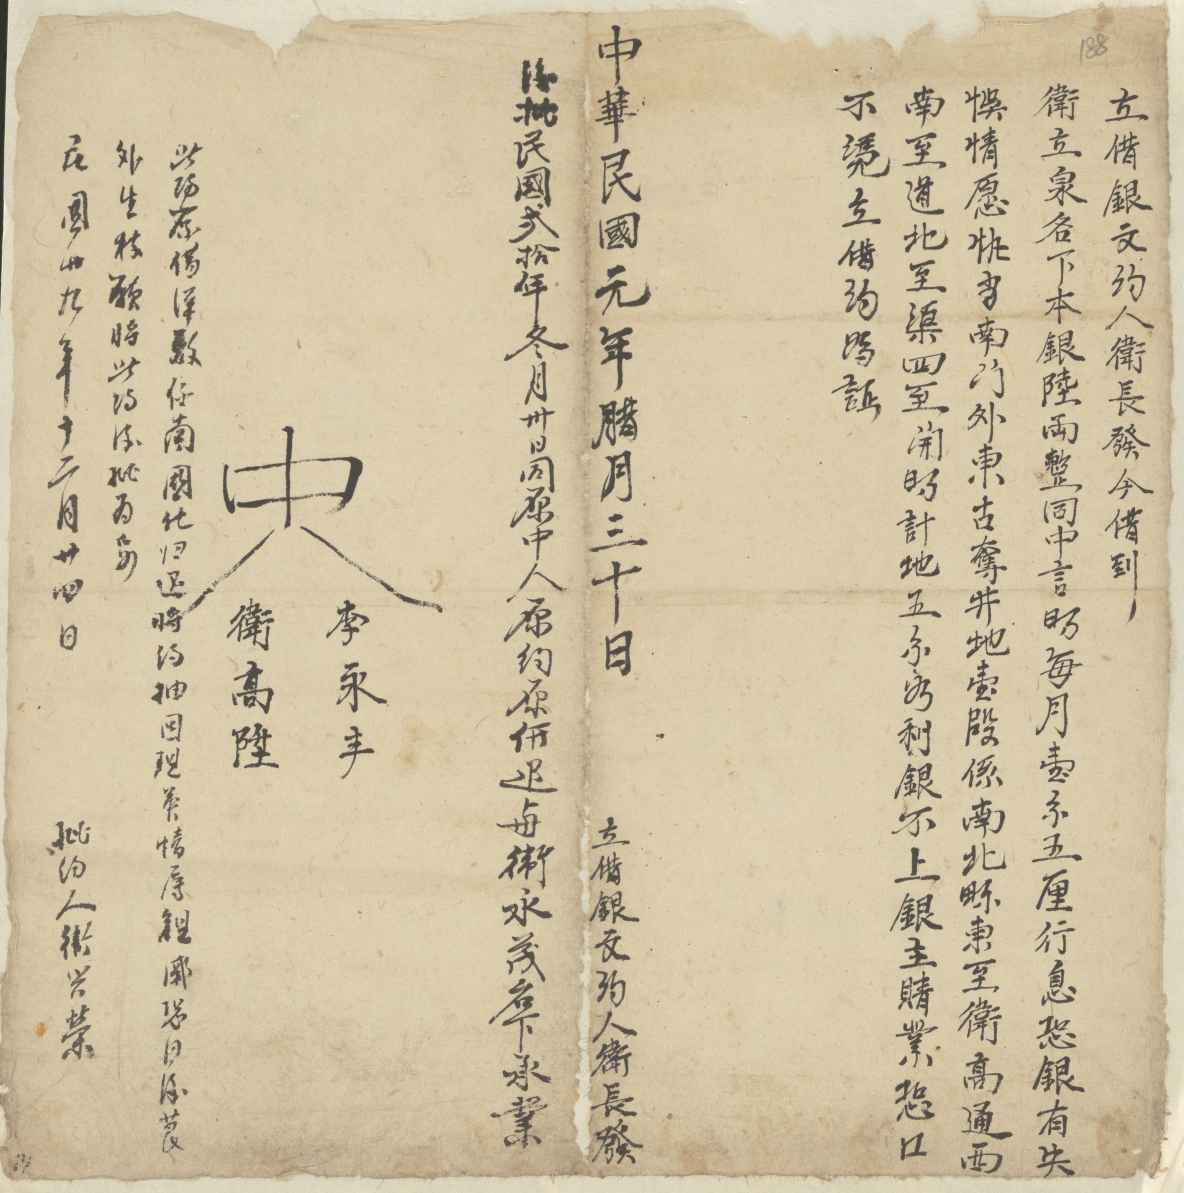 188
立借銀文約人衛長發今借到
衛立泉名下本銀陸両整同中言明每月壹分五厘行息恐銀有失
悞情愿将南门外東古奪井地壹段係南北畛東至衛高通西
南至道北至渠四至開明計地五分利銀不上銀主睛業恐口
不凴立借約為証
中華民國元年腊月三十日
立借銀文約人衛長發
後批民國弍拾年冬月卅日同原中人原約原价退与衛永茂名下承業
中人
李永丰
衛高陞
此约原借洋數任南國化归还時约抽因理英情厚恐日後
外生枝願將此约後批为
民國廿九年十二月廿四日
批约人衛兴荣